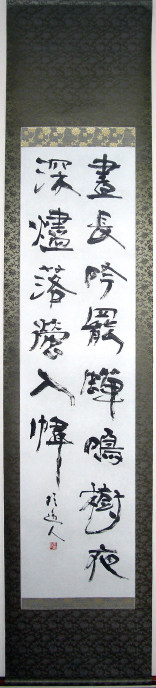 晝長吟罷蟬鳴樹夜
深燼落螢入幃